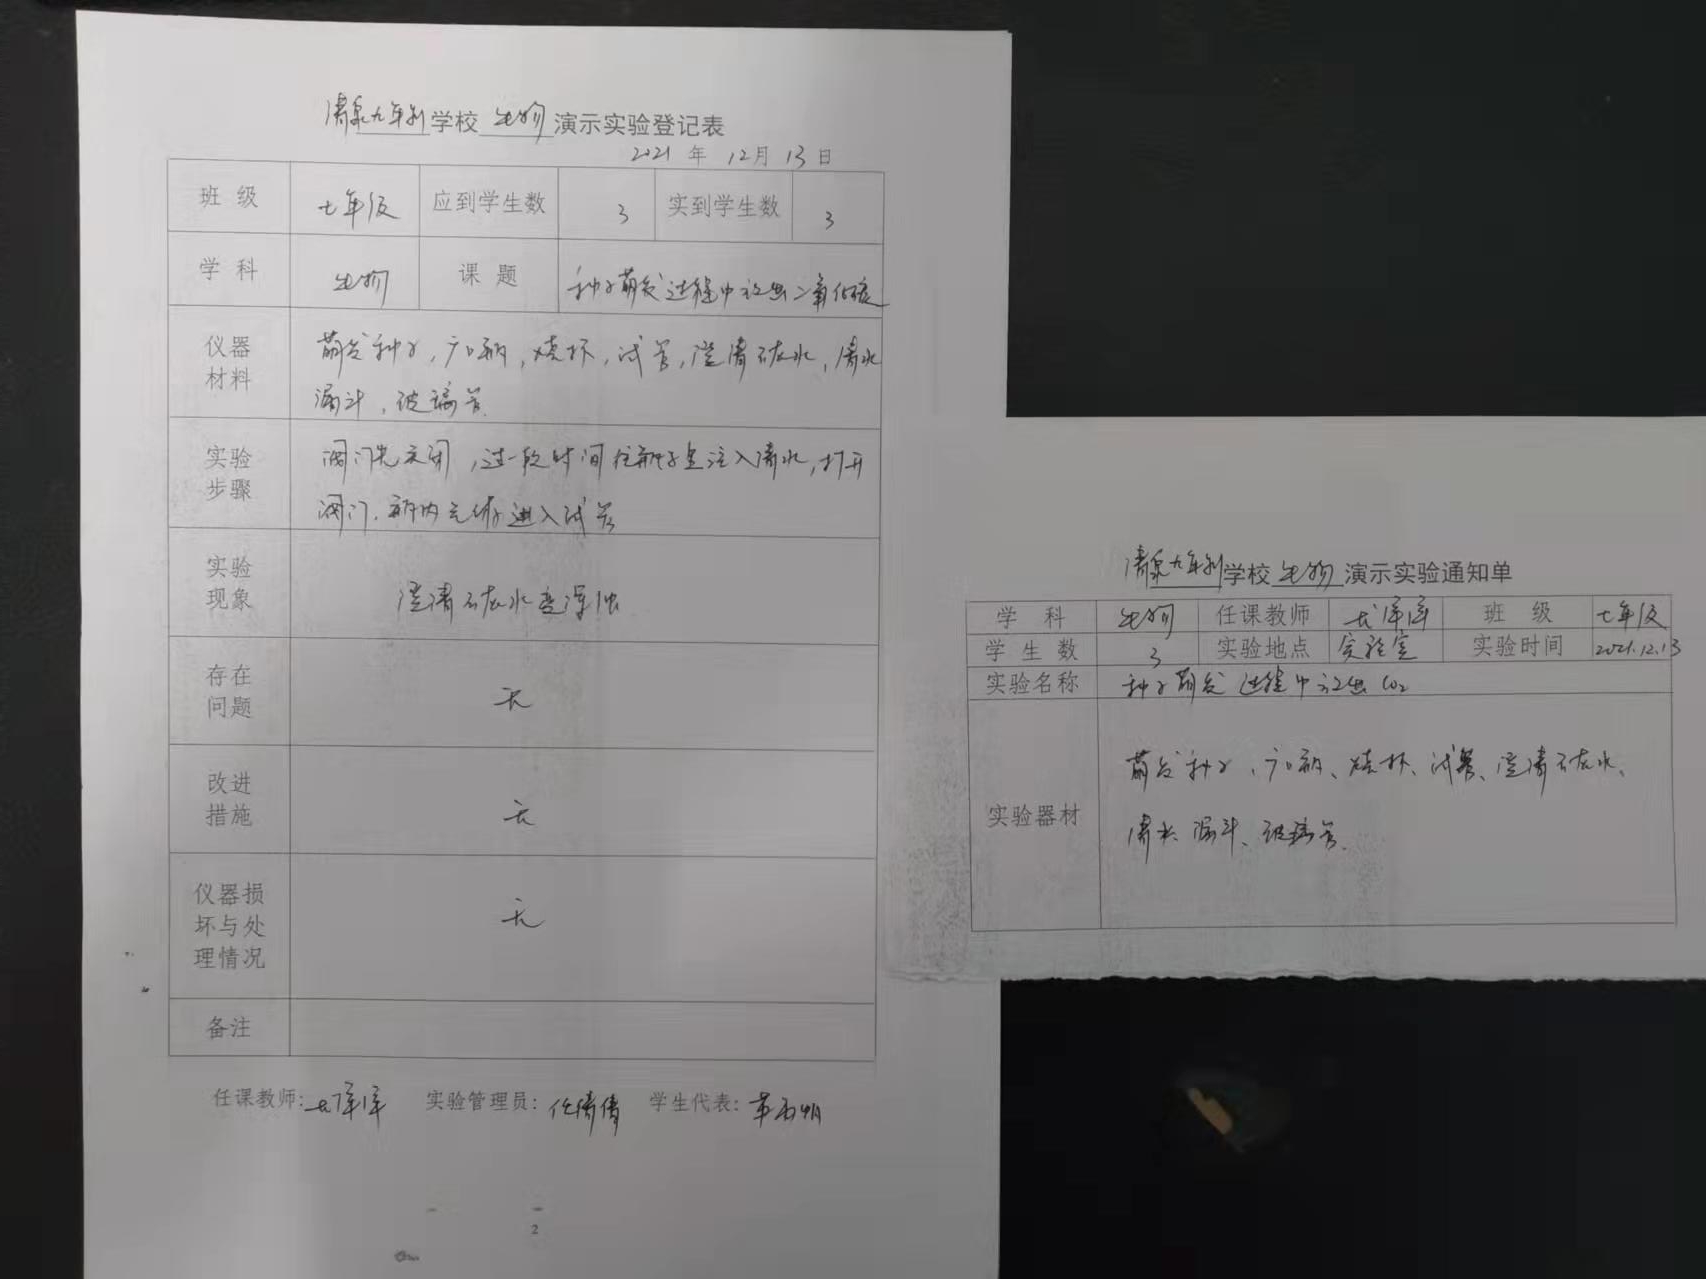 清泉九年制学校 生物 演示实验登记表
2021 年 12月 13 日
班 级 七年级 应到学生数 3 实到学生数 3
学 科 生物 课 题 种子萌发过程中放出二氧化碳
仪器材料 萌发种子,广口瓶,烧杯,试管,澄清石灰水,清水
漏斗,玻璃管.
实验步骤 阀门先关闭,过一段时间往瓶子里注入清水,打开
阀门.瓶内气体进入试管
实验现象 澄清石灰水变浑浊
存在问题 无
改进措施 无
仪器损坏与处理情况 无
备注
任课教师: 实验管理员: 任倩倩 学生代表:
2
清泉九年制学校 生物 演示实验通知单
学 科 生物 任课教师 班 级 七年级
学 生 数 3 实验地点 实验室 实验时间 2021.12.13
实验名称 种子萌发过程中放出CO₂
实验器材 萌发种子、广口瓶、烧杯、试管、澄清石灰水、
清水、漏斗、玻璃管.